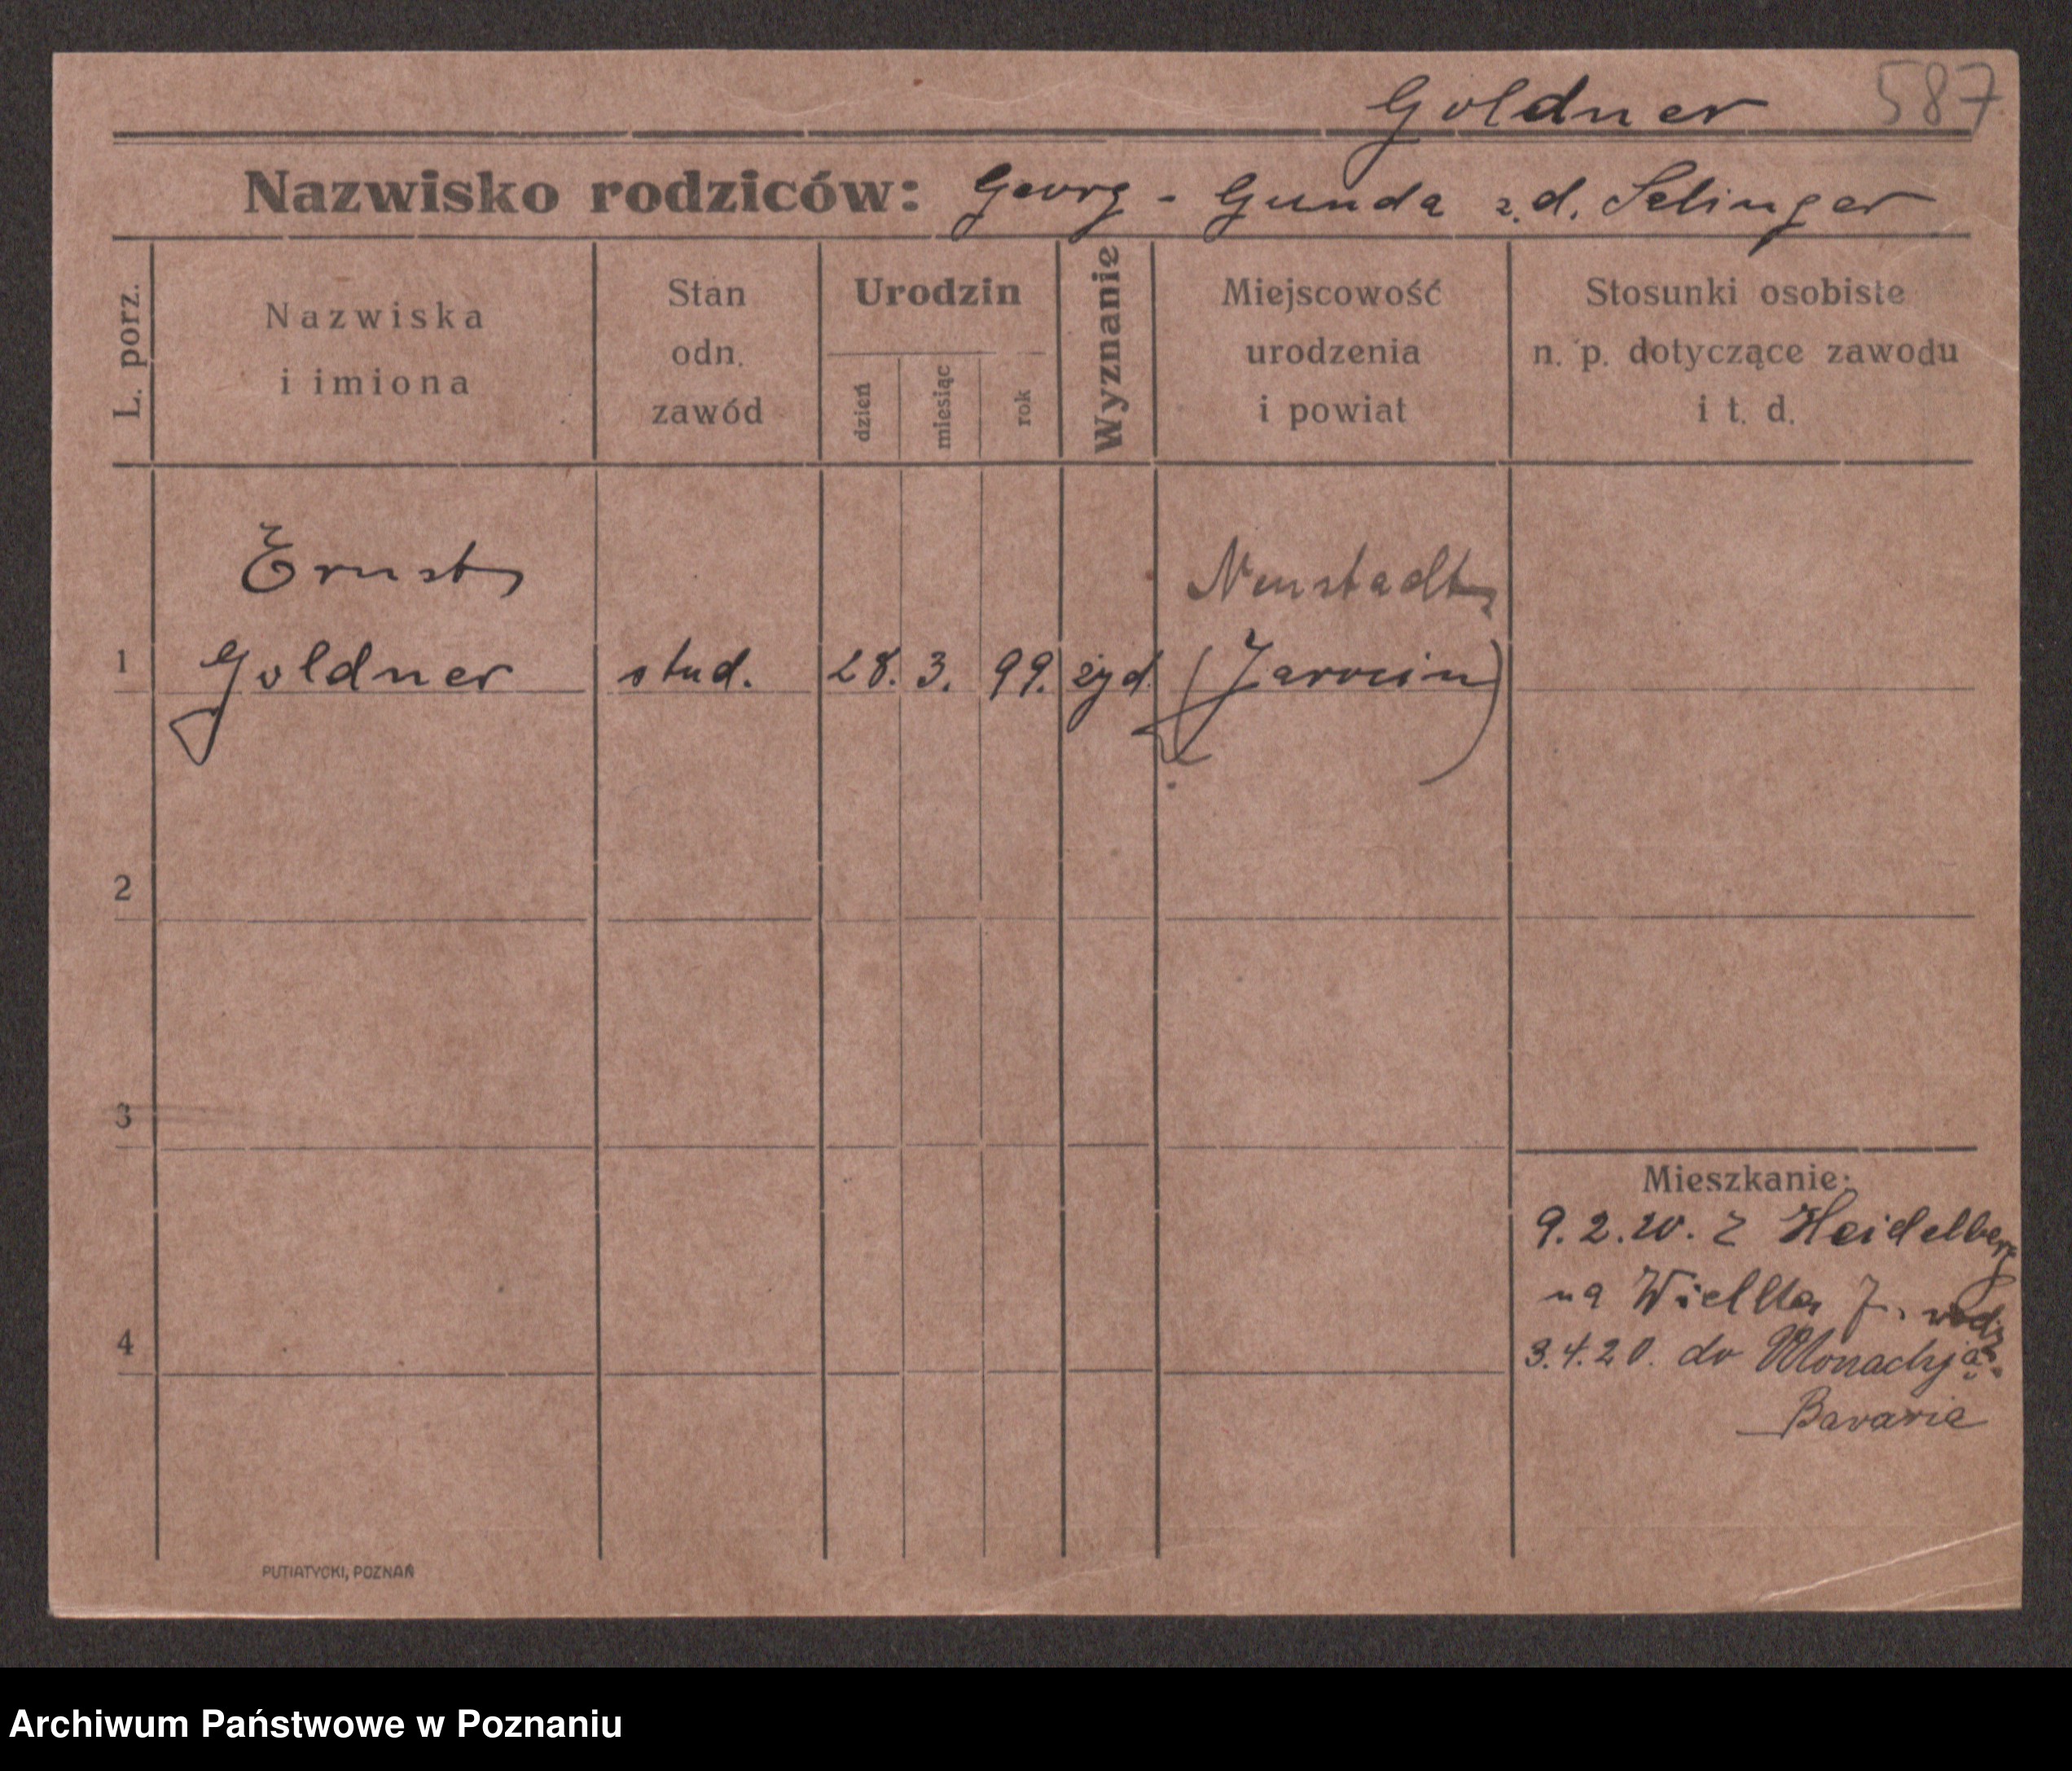 Goldner 587
Nazwisko rodziców: Georg - Gunda z. d. Selinger
L. porz.
Nazwiska
i imiona
Stan
odn.
zawód
Urodzin
dzień
miesiąc
rok
Wyznanie
Miejscowość
urodzenia
i powiat
Stosunki osobiste
n. p. dotyczące zawodu
i t. d.
Ernst Neustadt
1 Goldner stud. 28. 3. 99. żyd. (Jarocin)
2
3
Mieszkanie:
9. 2. 20. z Heidelberg
na
4 3. 4. 20. do Monachją
Bavaria
PUTIATYCKI, POZNAŃ
Archiwum Państwowe w Poznaniu